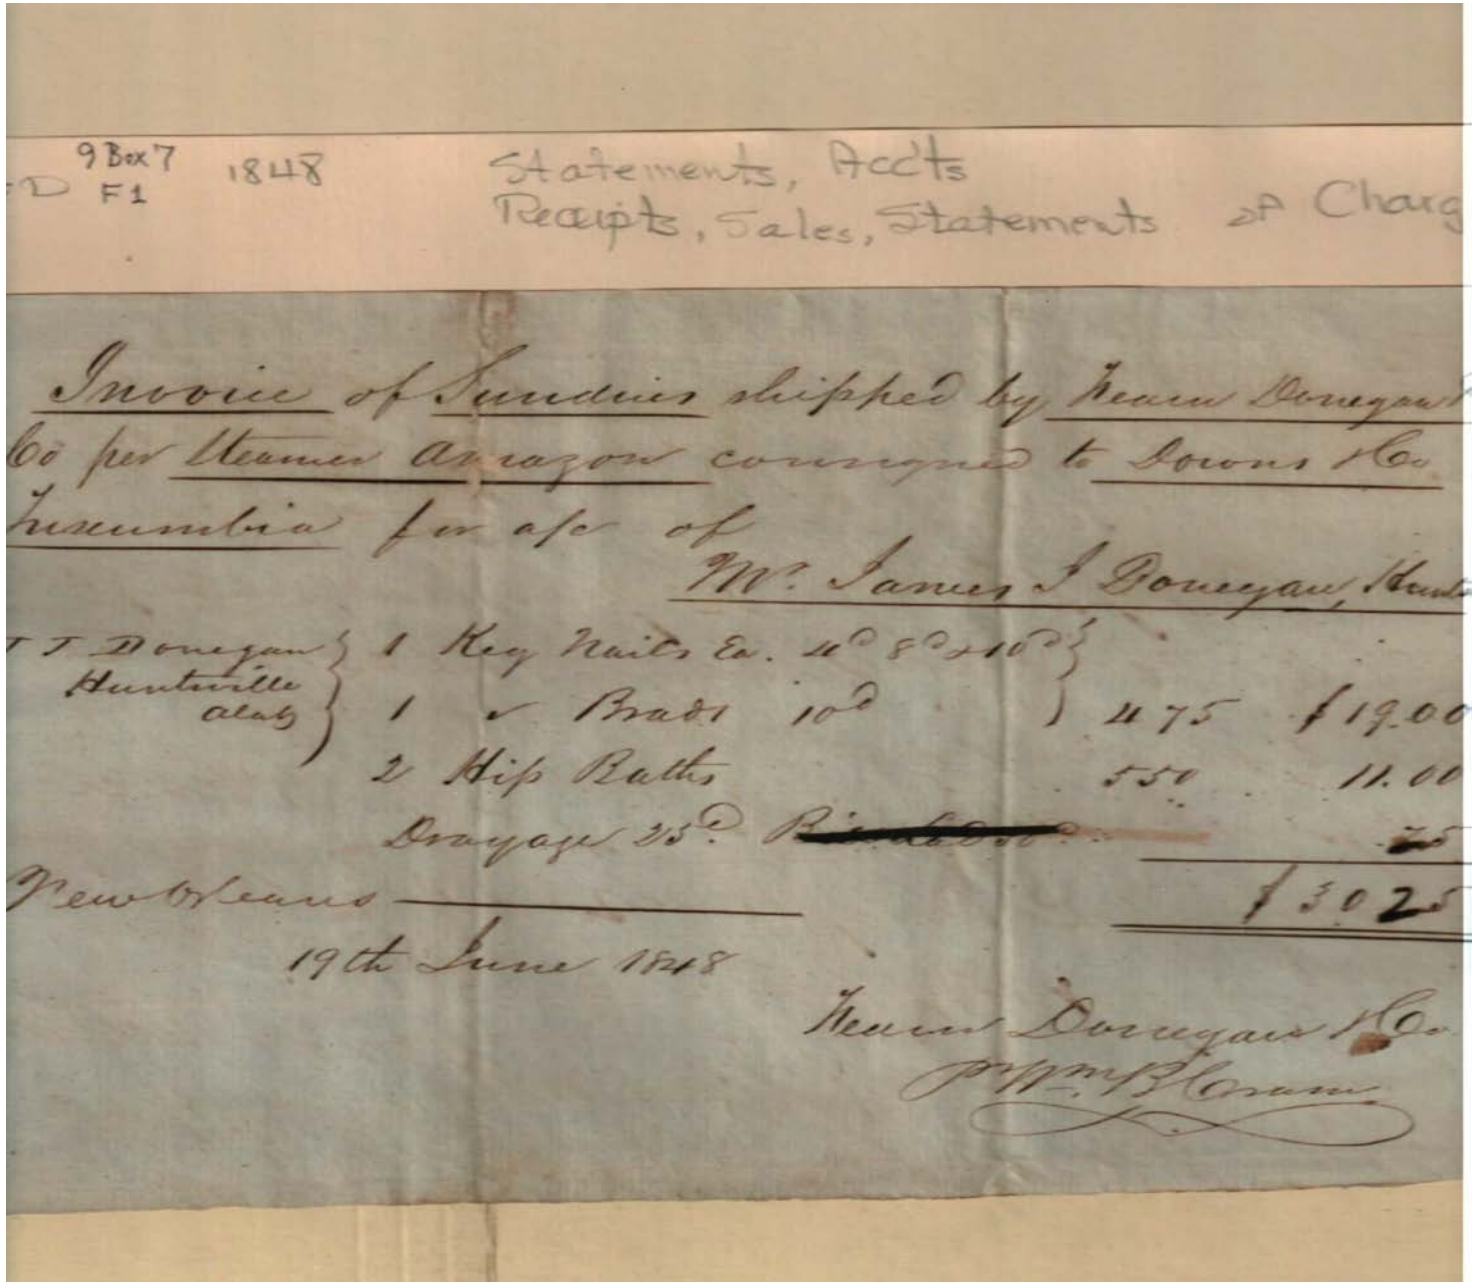 9 Box 7
F1
1848
Statements, Acc'ts
Receipts, Sales, Statements of Charg
Invoice of Sundries shipped by Fearn Donegan &
Co per Steamer Amazon consigned to Downs & Co
Tuscumbia for a/c of
Mr. James J Donegan, Hunts
J J Donegan
Huntsville
Alab
1 Keg Nails Ea. 4d 8d & 10d
1 " Brads 10d 475 $19.00
2 Hip Baths 550 11.00
Drayage 25d. 25
New Orleans $3025
19th June 1848
Fearn Donegan & Co
pr Wm. B Crane